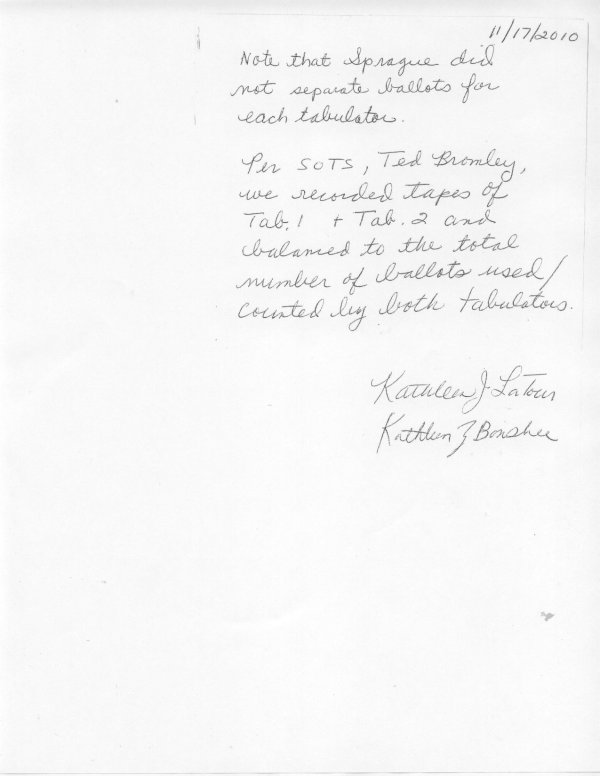 11/17/2010
Note that Sprague did
not separate ballots for
each tabulator.
Per SOTS, Ted Bromley,
we recorded tapes of
Tab. 1 + Tab. 2 and
balanced to the total
number of ballots used/
counted by both tabulators.
Kathleen J LaTour
Kathleen Z Bonshee